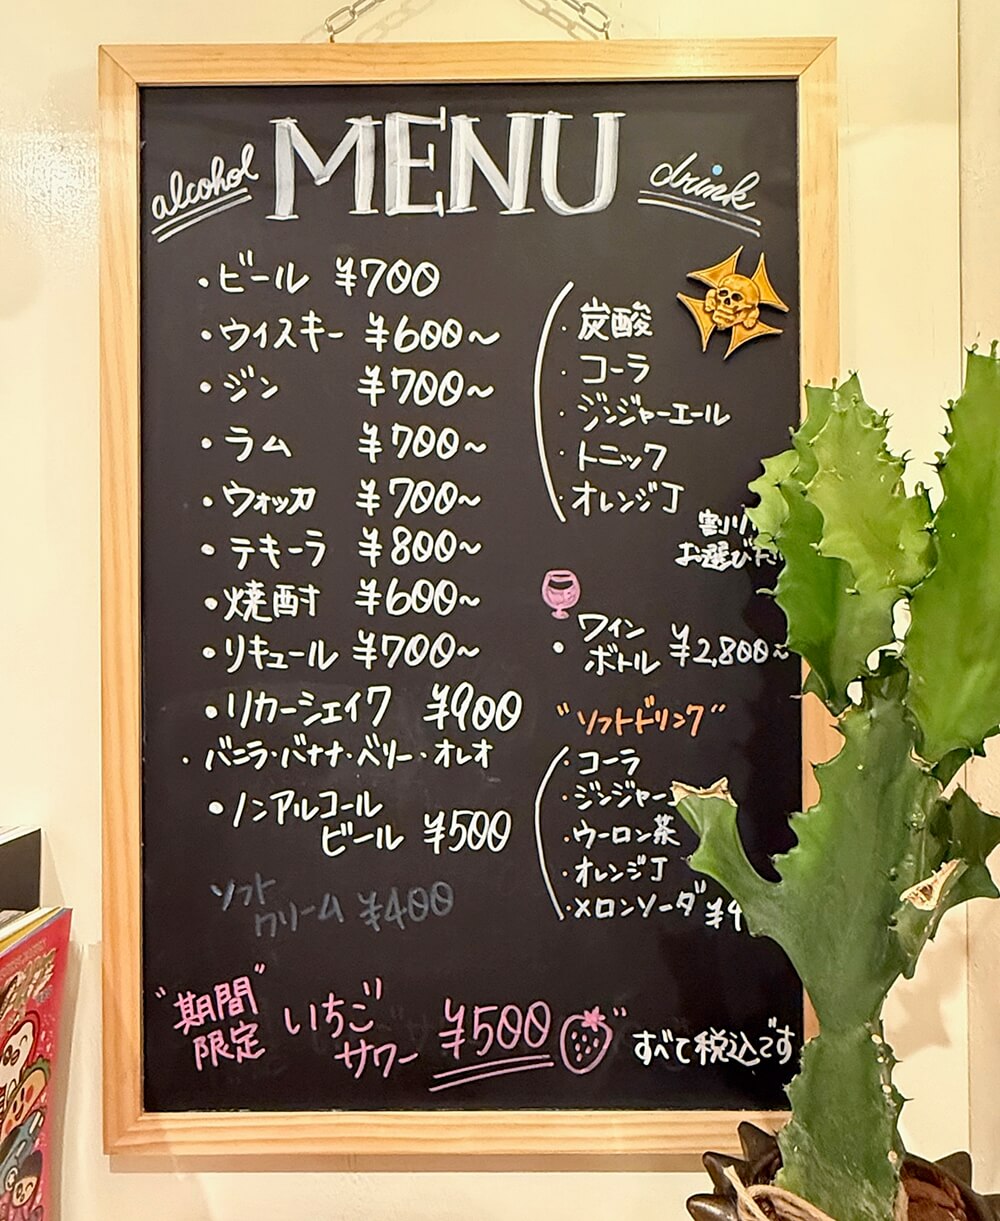 alcohol MENU drink
・ビール ¥700
・ウイスキー ¥600〜
・ジン ¥700〜
・ラム ¥700〜
・ウォッカ ¥700〜
・テキーラ ¥800〜
・焼酎 ¥600〜
・リキュール ¥700〜
・リカーシェイク ¥900
・バニラ・バナナ・ベリー・オレオ
・ノンアルコール
ビール ¥500
ソフト
クリーム ¥400
・炭酸
・コーラ
・ジンジャーエール
・トニック
・オレンジJ
割り
お選び
・ワイン
ボトル ¥2,800〜
"ソフトドリンク"
・コーラ
・ジンジャー
・ウーロン茶
・オレンジJ
・メロンソーダ
"期間
限定
いちご
サワー ¥500"
すべて税込です